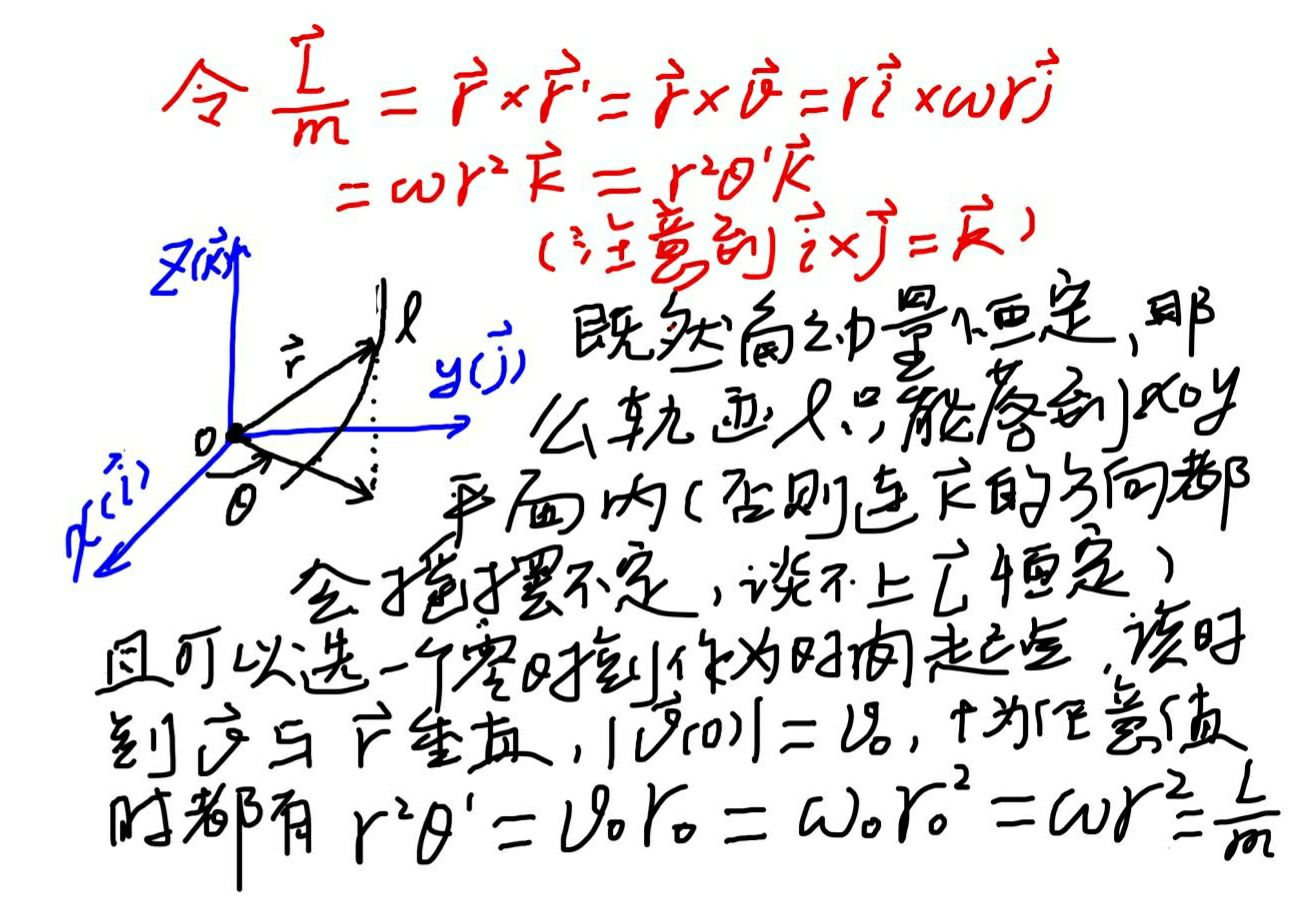 令 L⃗/m = r⃗ × r⃗' = r⃗ × v⃗ = ri⃗ × ωrj⃗
= ωr²k⃗ = r²θ'k⃗
(注意到 i⃗ × j⃗ = k⃗)
z(k⃗)
r⃗
l
y(j⃗)
O
θ
x(i⃗)
既然角动量恒定,那
么轨迹l只能落到xoy
平面内(否则连k⃗的方向都
会摇摆不定,谈不上L⃗恒定)
且可以选一个零时刻作为时间起点,该时
刻v⃗与r⃗垂直,|v⃗(0)| = v₀, t为任意值
时都有 r²θ' = v₀r₀ = ω₀r₀² = ωr² = L/m